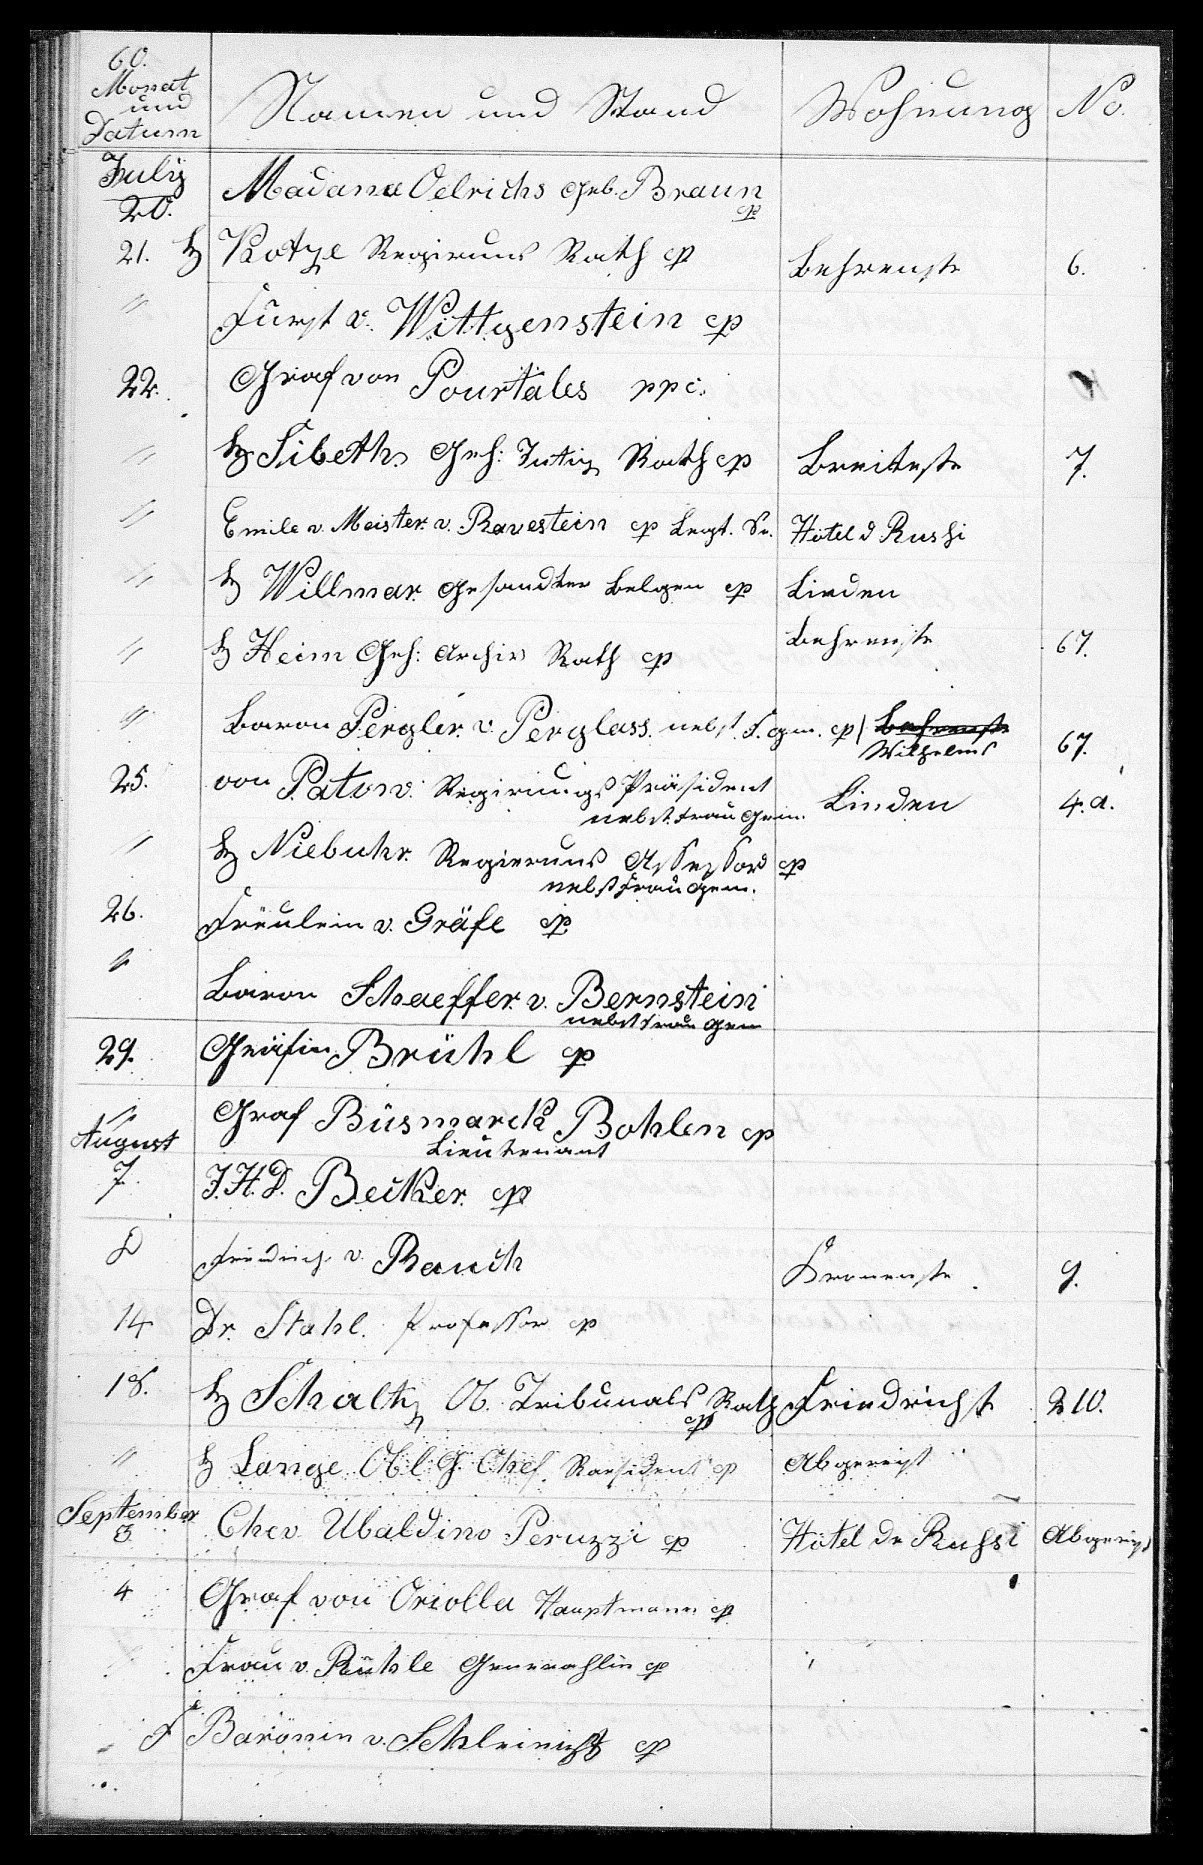 60.
Monat
und
Datum
Namen und Stand
Wohnung
No.
July
20.
Madame Oelrichs geb. Braun
cp
21. H Kotze Regiruns Rath cp
Behrenstr
6.
" Fürst v. Wittgenstein cp
22. Graf von Pourtales ppc.
" H. Sibeth Geh: Jutiz Rath cp
Breitestr
7.
" Emile v. Meister v. Ravestein cp Legt. Se.
Hôtel d Russi
" H Willmar Gesandter Belgen cp
Linden
" H Heim Geh: Archiv Rath cp
Behrenstr
67.
" Baron Pergler v. Perglass nebst F. gm. cp
Behrenstr
Wilhelms
67.
25. von Patow Regirungs Präsident
nebst Frau Gem.
Linden
4.a.
" H Niebuhr Regieruns Assessor cp
nebst Frau Gem.
26. Fräulein v. Gräfe cp.
" Baron Schaeffer v. Bernstein
nebst Frau Gem
29. Gräfin Brühl cp
" Graf Büsmarck Bohlen cp
Lieutenant
August
7. J.H.D. Becker cp
Friedrich v. Rauch
Kronenstr
9.
14 Dr. Stahl. Professor cp
18. H Schaltz Ob. Tribunals Rath
cp
Friedrichst
210.
" H Lange Obl G. Chef Raesident cp
Abgereist
September
3. Chev Ubaldino Peruzzi cp
Hôtel de Russi
Abgereist
4 Graf von Oriolla Hauptmann cp
Frau v. Rühle Generahlin cp
F Baronin v. Schleinitz cp